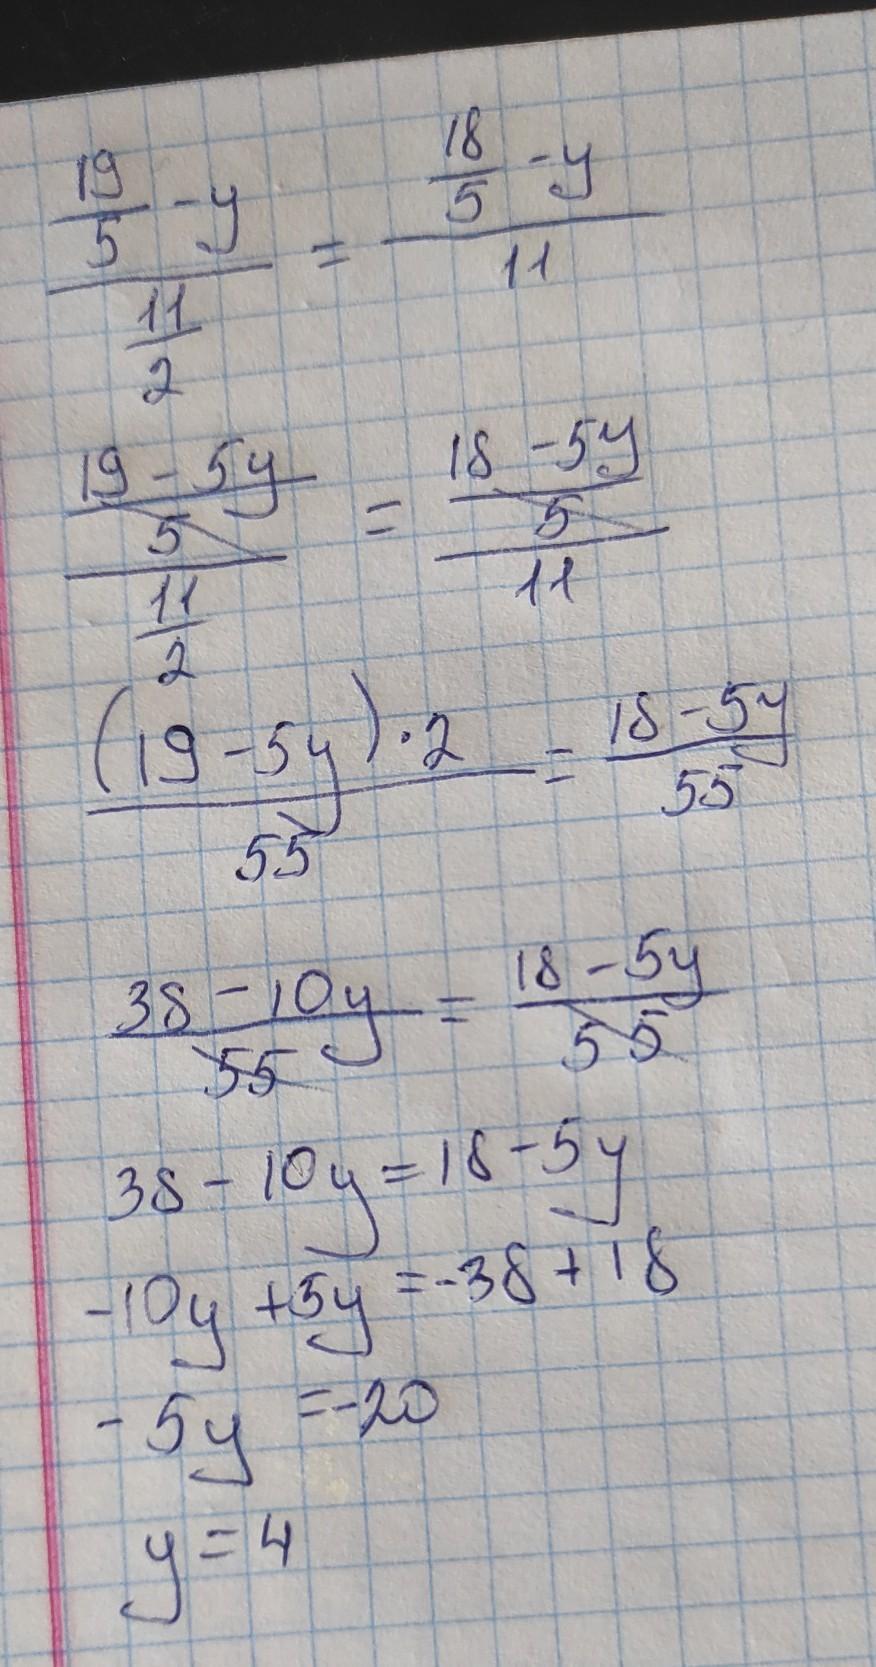 19/5 - y / 11/2 = 18/5 - y / 11
19 - 5y / 5 / 11/2 = 18 - 5y / 5 / 11
(19 - 5y) · 2 / 55 = 18 - 5y / 55
38 - 10y / 55 = 18 - 5y / 55
38 - 10y = 18 - 5y
-10y + 5y = -38 + 18
- 5y = -20
y = 4